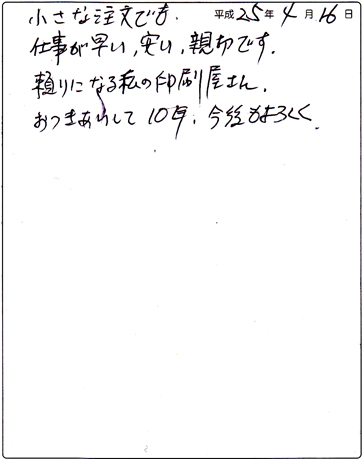 平成25年4月16日
小さな注文でも、
仕事が早い、安い、親切です。
頼りになる私の印刷屋さん。
おつきあいして10年、今後もよろしく。